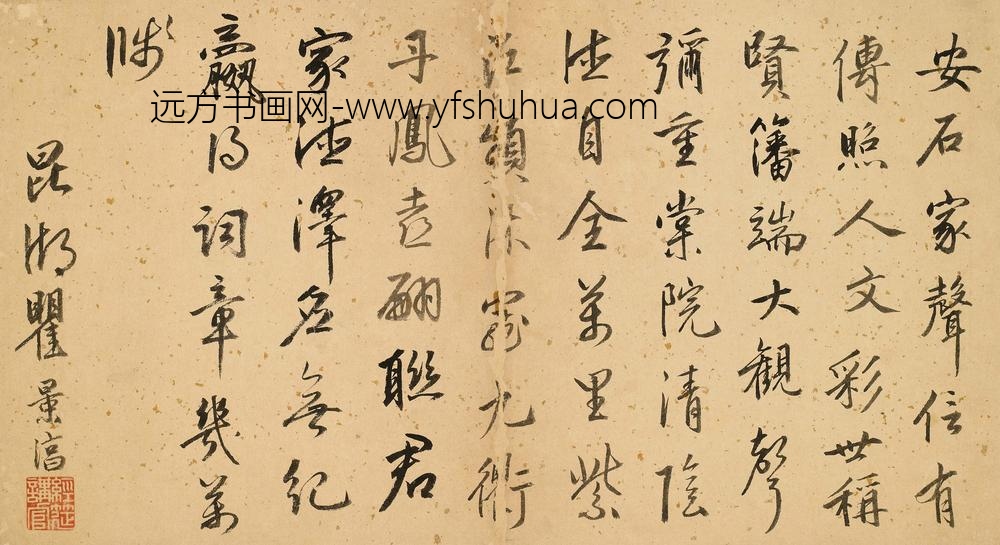 安石家聲信有
傳照人文彩世稱
賢籓端大觀聲
彌重棠院清陰
德自全萬里紫
寵九衢
丹鳳喜翩聯君
家德澤應無紀
贏得詞章幾萬
牋
昆湖瞿景淳
經筵講官
远方书画网-www.yfshuhua.com